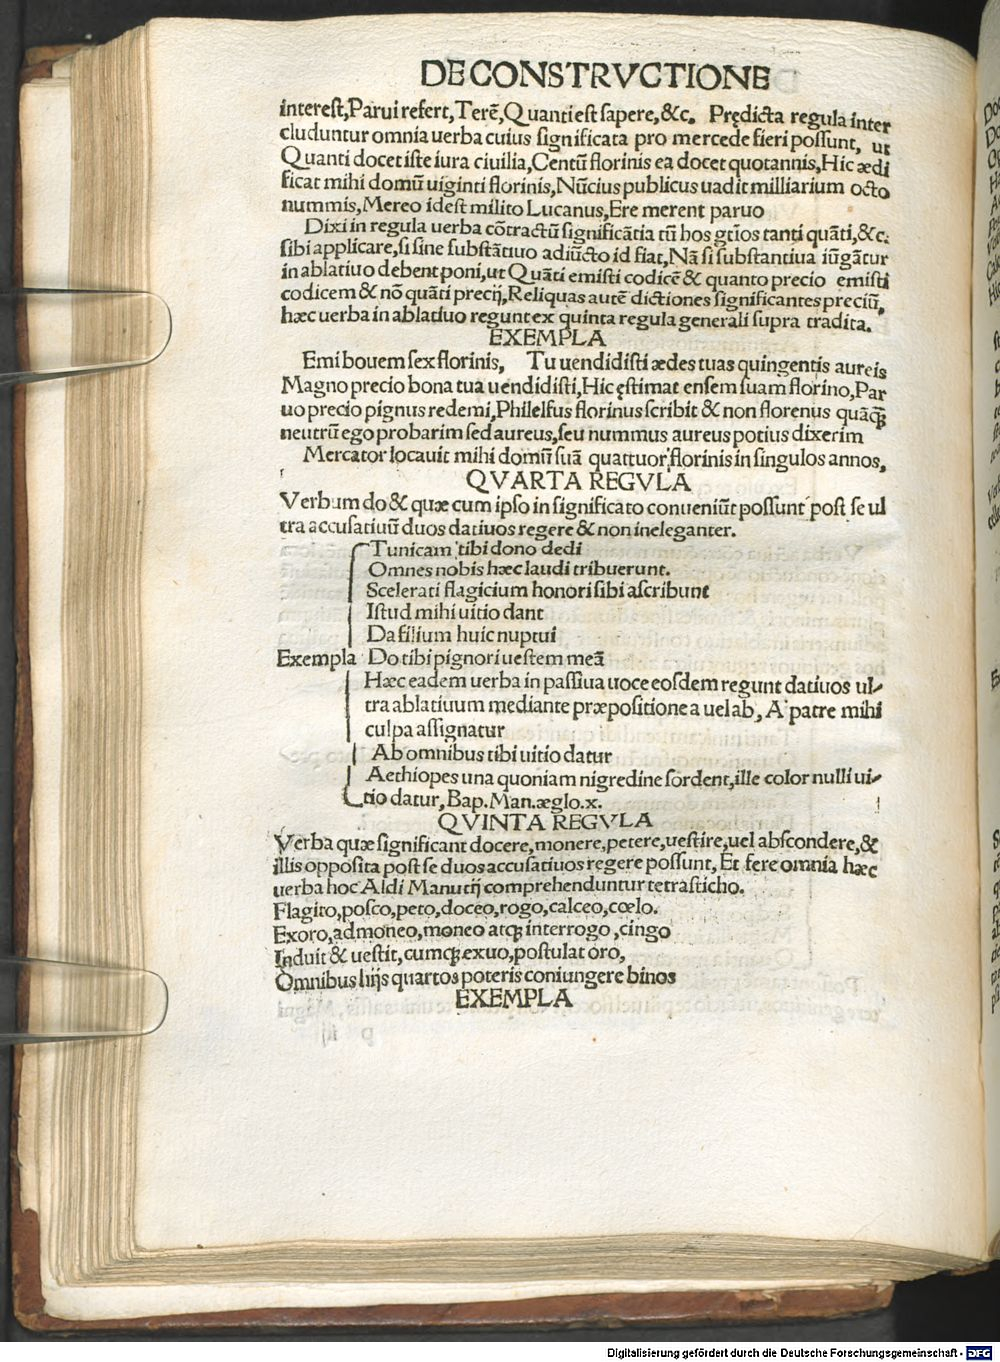 DE CONSTRVCTIONE
interest,Parui refert,Terē,Quanti est sapere,&c. Prędicta regula inter
cluduntur omnia uerba cuius significata pro mercede fieri possunt, ut
Quanti docet iste iura ciuilia,Centū florinis ea docet quotannis,Hic ædi
ficat mihi domū uiginti florinis,Nūcius publicus uadit milliarium octo
nummis,Mereo idest milito Lucanus,Ere merent paruo
Dixi in regula uerba cōtractū significātia cū hos gtīos tanti quāti,&c.
sibi applicare,si sine substātiuo adiūcto id fiat,Nā si substantiua iūgātur
in ablatiuo debent poni,ut Quāti emisti codicē & quanto precio emisti
codicem & nō quāti precij,Reliquas autē dictiones significantes preciū,
hæc uerba in ablatiuo regunt ex quinta regula generali supra tradita.
EXEMPLA
Emi bouem sex florinis, Tu uendidisti ædes tuas quingentis aureis
Magno precio bona tua uendidisti,Hic ęstimat ensem suam florino,Par
uo precio pignus redemi,Philelfus florinus scribit & non florenus quāqꝫ
neutrū ego probarim sed aureus,seu nummus aureus potius dixerim
Mercator locauit mihi domū suā quattuor florinis in singulos annos,
QVARTA REGVLA
Verbum do & quæ cum ipso in significato conueniūt possunt post se ul
tra accusatiuū duos datiuos regere & non ineleganter.
Tunicam tibi dono dedi
Omnes nobis hæc laudi tribuerunt.
Scelerati flagicium honori sibi ascribunt
Istud mihi uitio dant
Da filium huic nuptui
Exempla Do tibi pignori uestem meā
Hæc eadem uerba in passiua uoce eosdem regunt datiuos ul-
tra ablatiuum mediante præpositione a uel ab, A patre mihi
culpa assignatur
Ab omnibus tibi uitio datur
Aethiopes una quoniam nigredine sordent,ille color nulli ui-
tio datur,Bap.Man.æglo.x.
QVINTA REGVLA
Verba quæ significant docere,monere,petere,uestire,uel abscondere,&
illis opposita post se duos accusatiuos regere possunt, Et fere omnia hæc
uerba hoc Aldi Manutij comprehenduntur tetrasticho.
Flagito,posco,peto,doceo,rogo,calceo,cœlo.
Exoro,admoneo,moneo atqꝫ interrogo,cingo
Induit & uestit,cumqꝫ exuo,postulat oro,
Omnibus hijs quartos poteris coniungere binos
EXEMPLA
Digitalisierung gefördert durch die Deutsche Forschungsgemeinschaft - DFG